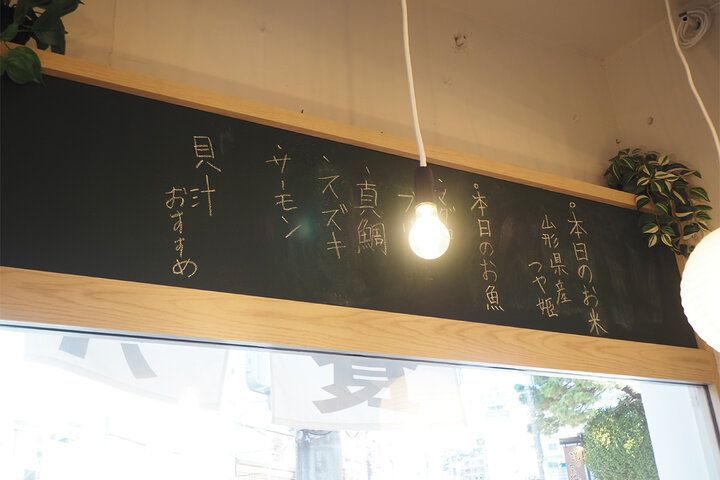 °本日のお米
山形県産
つや姫
°本日のお魚
・真鯛
・スズキ
・サーモン
貝汁
おすすめ